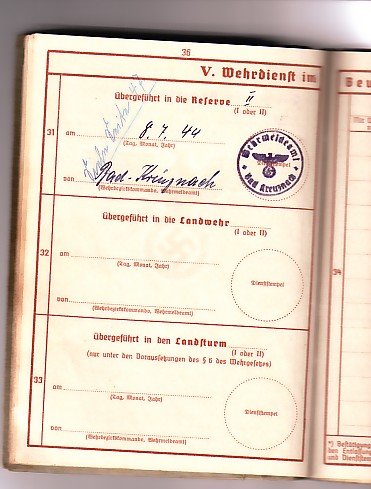 36
V. Wehrdienst im
Beu
übergeführt in die Reserve II
(I oder II)
31
am 8. 7. 44
(Tag, Monat, Jahr)
von Bad-Kreuznach
(Wehrbezirkskommando, Wehrmeldeamt)
Wehrmeldeamt
Dienststempel
Bad Kreuznach
übergeführt in die Landwehr
(I oder II)
32
am
(Tag, Monat, Jahr)
von
(Wehrbezirkskommando, Wehrmeldeamt)
Dienststempel
34
übergeführt in den Landsturm
(I oder II)
(nur unter den Voraussetzungen des § 6 des Wehrgesetzes)
33
am
(Tag, Monat, Jahr)
von
(Wehrbezirkskommando, Wehrmeldeamt)
Dienststempel
*) Bestätigung
ben Entlassung
und Dienststem